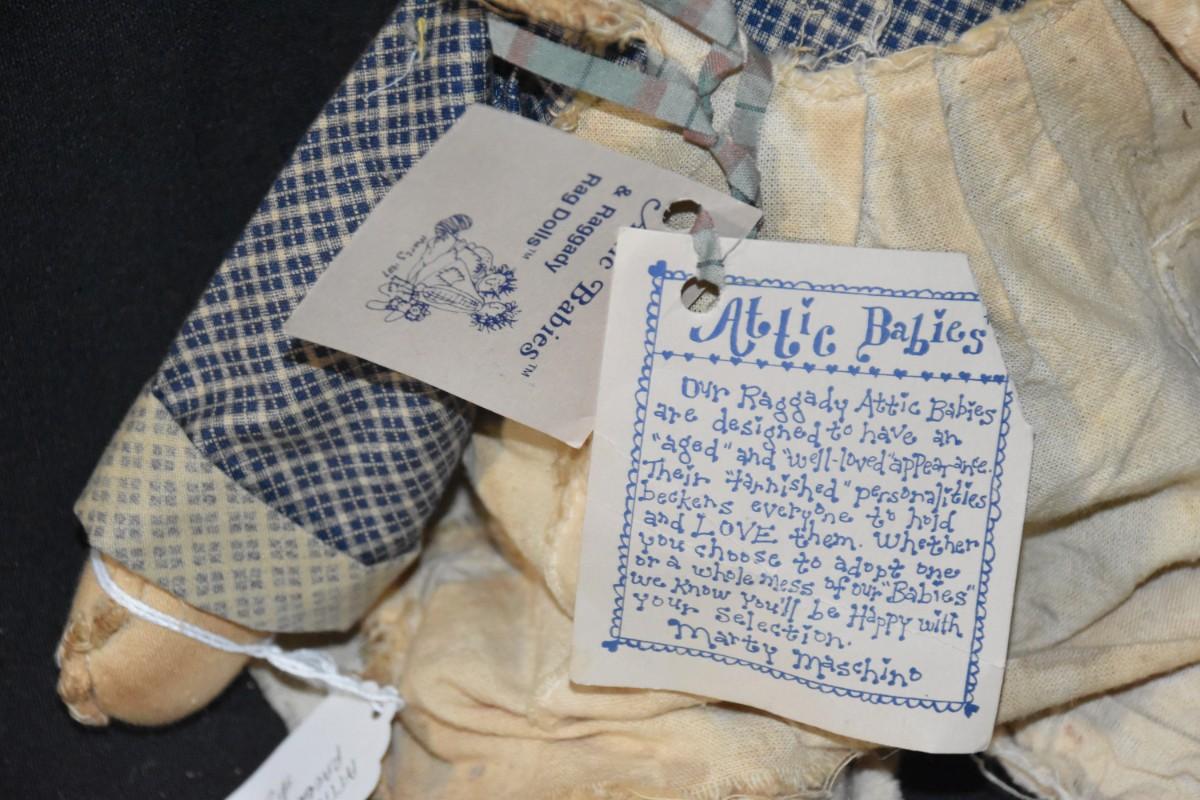 Attic Babies
Our Raggady Attic Babies
are designed to have an
"aged" and "well-loved" appearance.
Their "tarnished" personalities
beckens everyone to hold
and LOVE them. Whether
you choose to adopt one
or a whole mess of our "Babies"
we know you'll be Happy with
your selection.
Marty Maschino
Babies™
& Raggady
Rag Dolls™